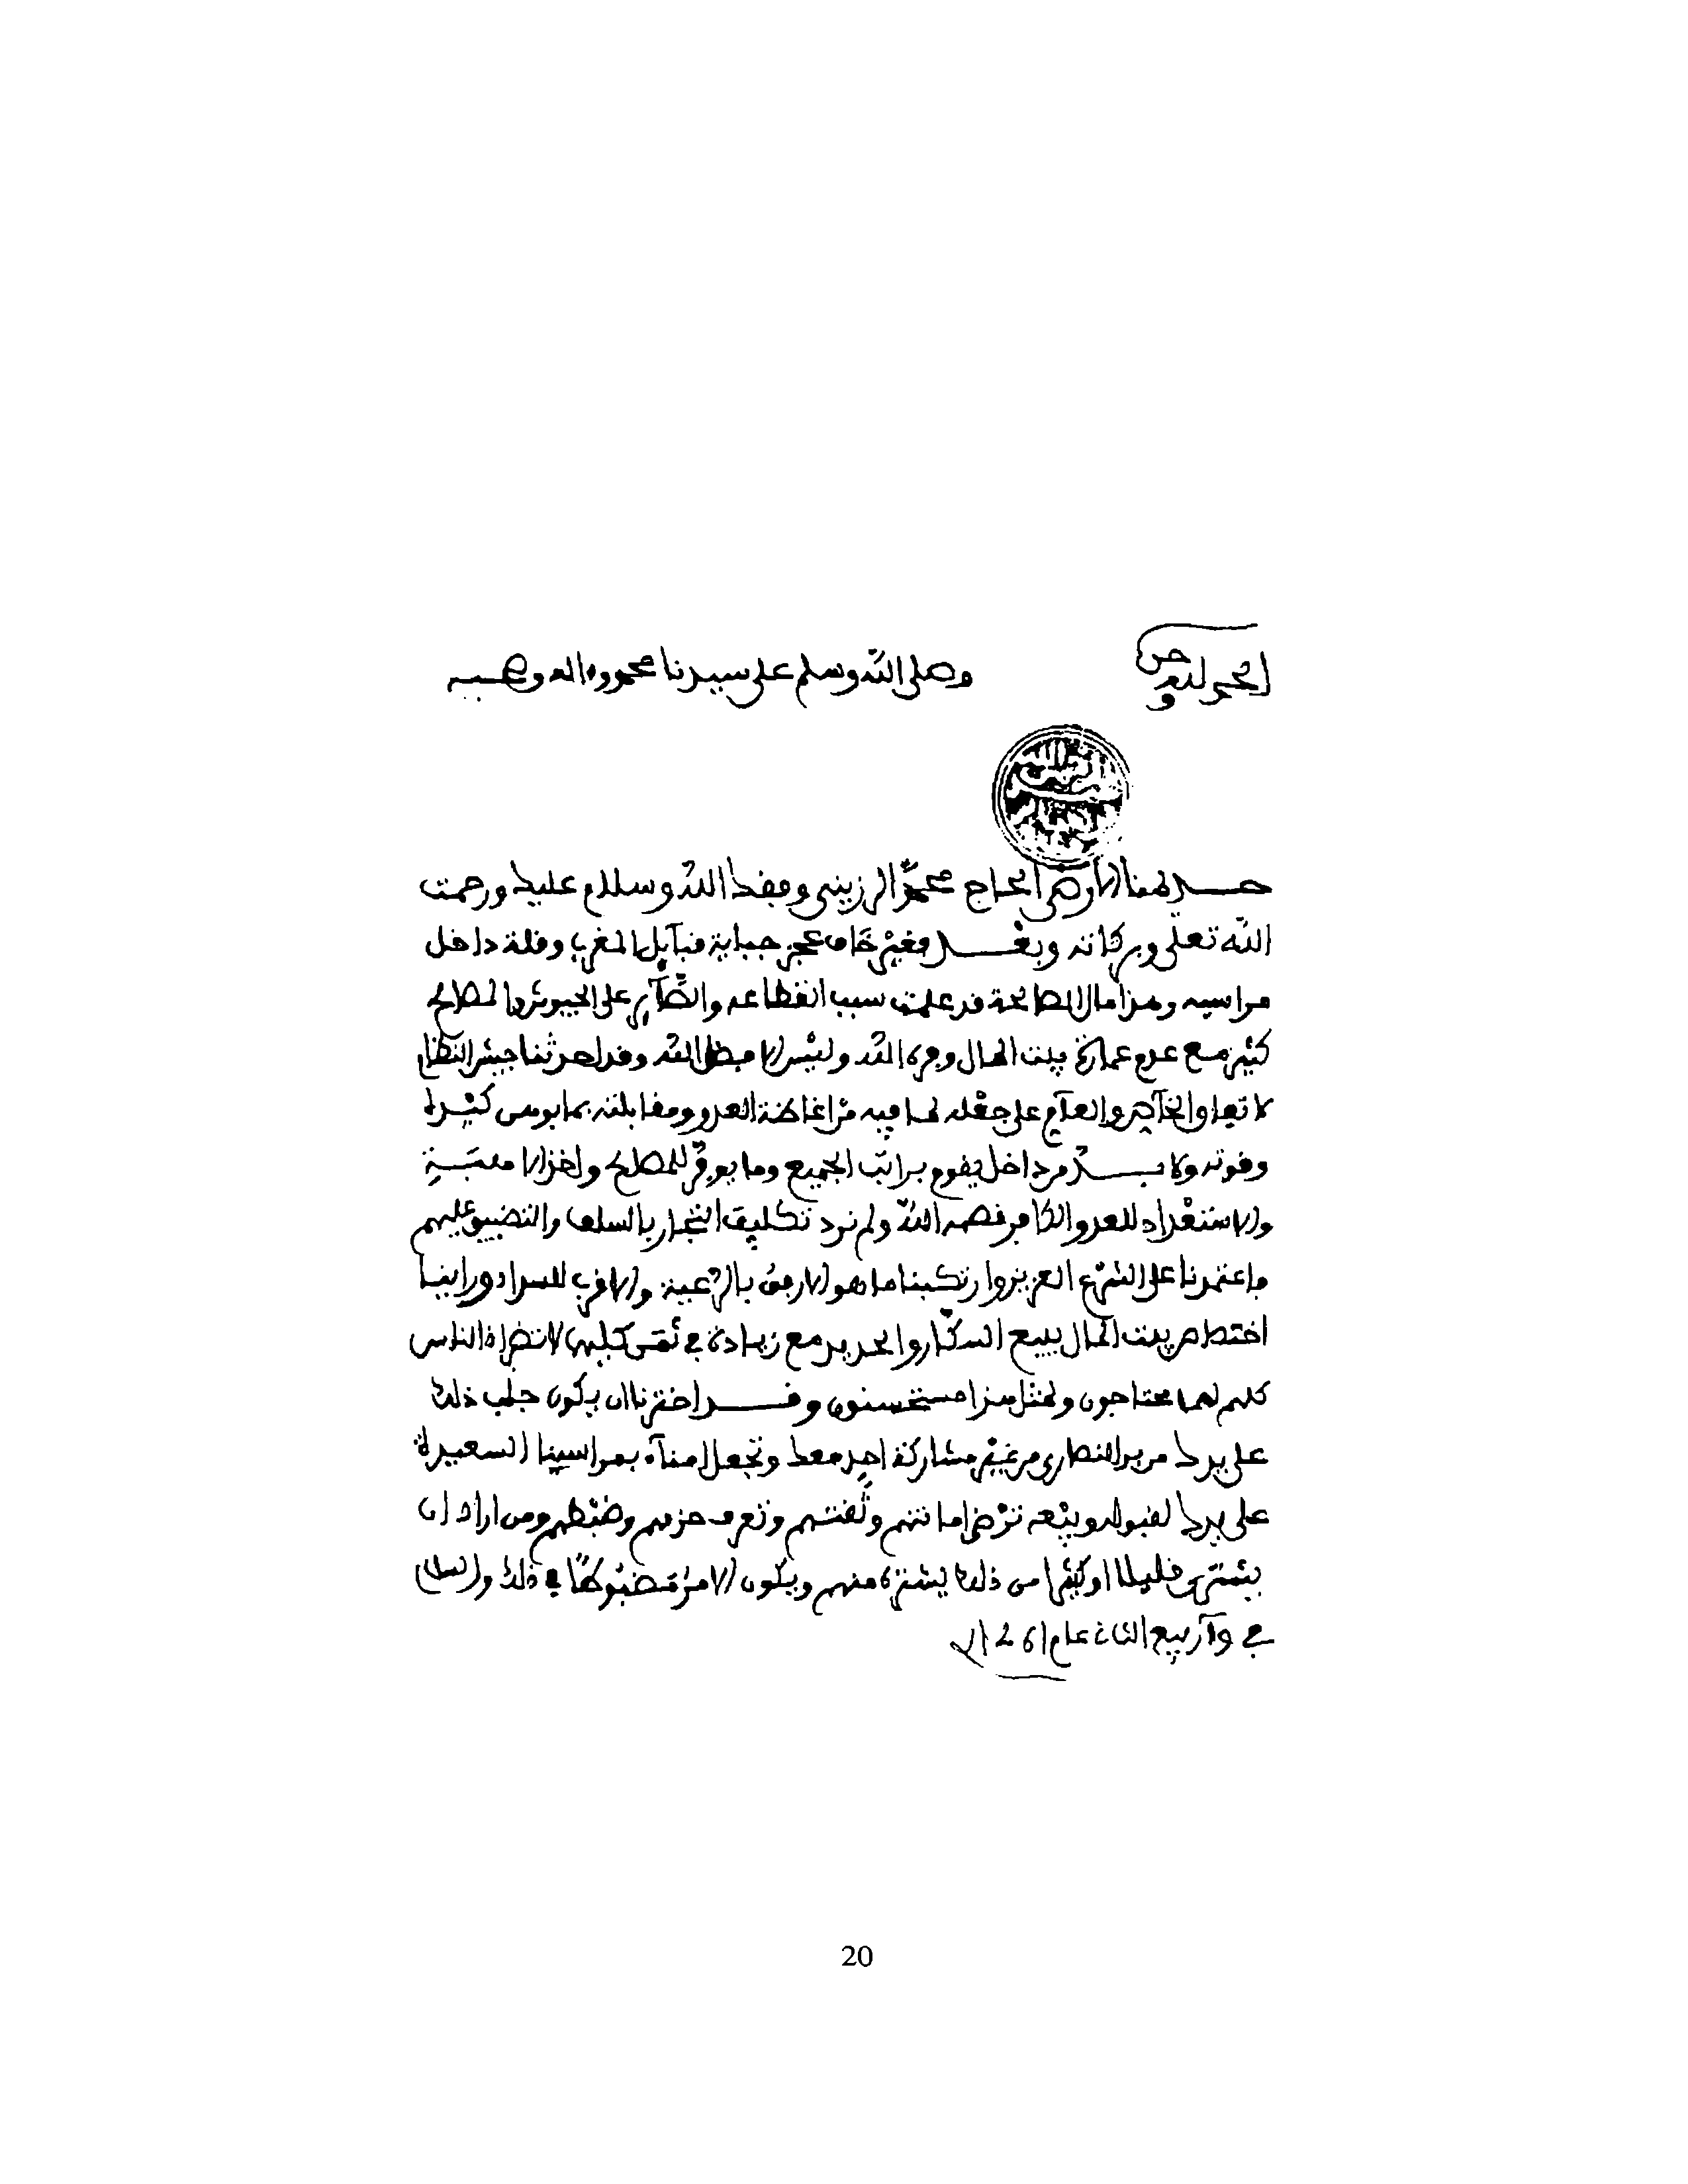 الحمد لله وحده
وصلى الله وسلم على سيدنا محمد وءاله وصحبه
خديمنا الارضى الحاج محمد الرزيني وفقك الله وسلام عليك ورحمت
الله تعلى وبركاته وبعد فغير خاف عجز جباية قبآيل المغرب وقلة داخل
مراسيه وهذا مال المصالحة قد علمت سبب انقطاعه والصآير على الجيوش والمصالح
كثير مع عدم عمارة بيت المال وجره الله وليس الا فضل الله وقد احدثنا جيش النظام
لاتفاق الخآص والعآم على جعله لما فيه من اغاظة العدو ومقابلته بما يوهي كثيرا
وقوته ولا بد من داخل يقوم براتب الجميع وما يوفر للمصالح واخذ الاهبة
والاستعداد للعدو الكافر قصمه الله ولم نرد تكليف التجار بالسلف والتضييق عليهم
فاعتمدنا على الشرع العزيز وارتكبنا ما هو الارفق بالرعية والاقرب للسداد ورأينا
اختصاص بيت المال ببيع السكار والحديد مع زيادة في ثمن كليهما لا تضر اذ الناس
كلهم لهما محتاجون ولمثل هذا مستحسنون وقد اخترنا ان يكون جلب ذلك
على يدك من بر النصارى من غير مشاركة احد معك وتجعل امنآء بمراسينا السعيدة
على يدك لقبوله وبيعه ترضى امانتهم وثقتهم وتعرف حزمهم وضبطهم ومن اراد ان
يشتري قليلا او كثيرا من ذلك يشتره منهم ويكون الامر مضبوطا في ذلك والسلام
في وآ ربيع الثاني عام 1266
20